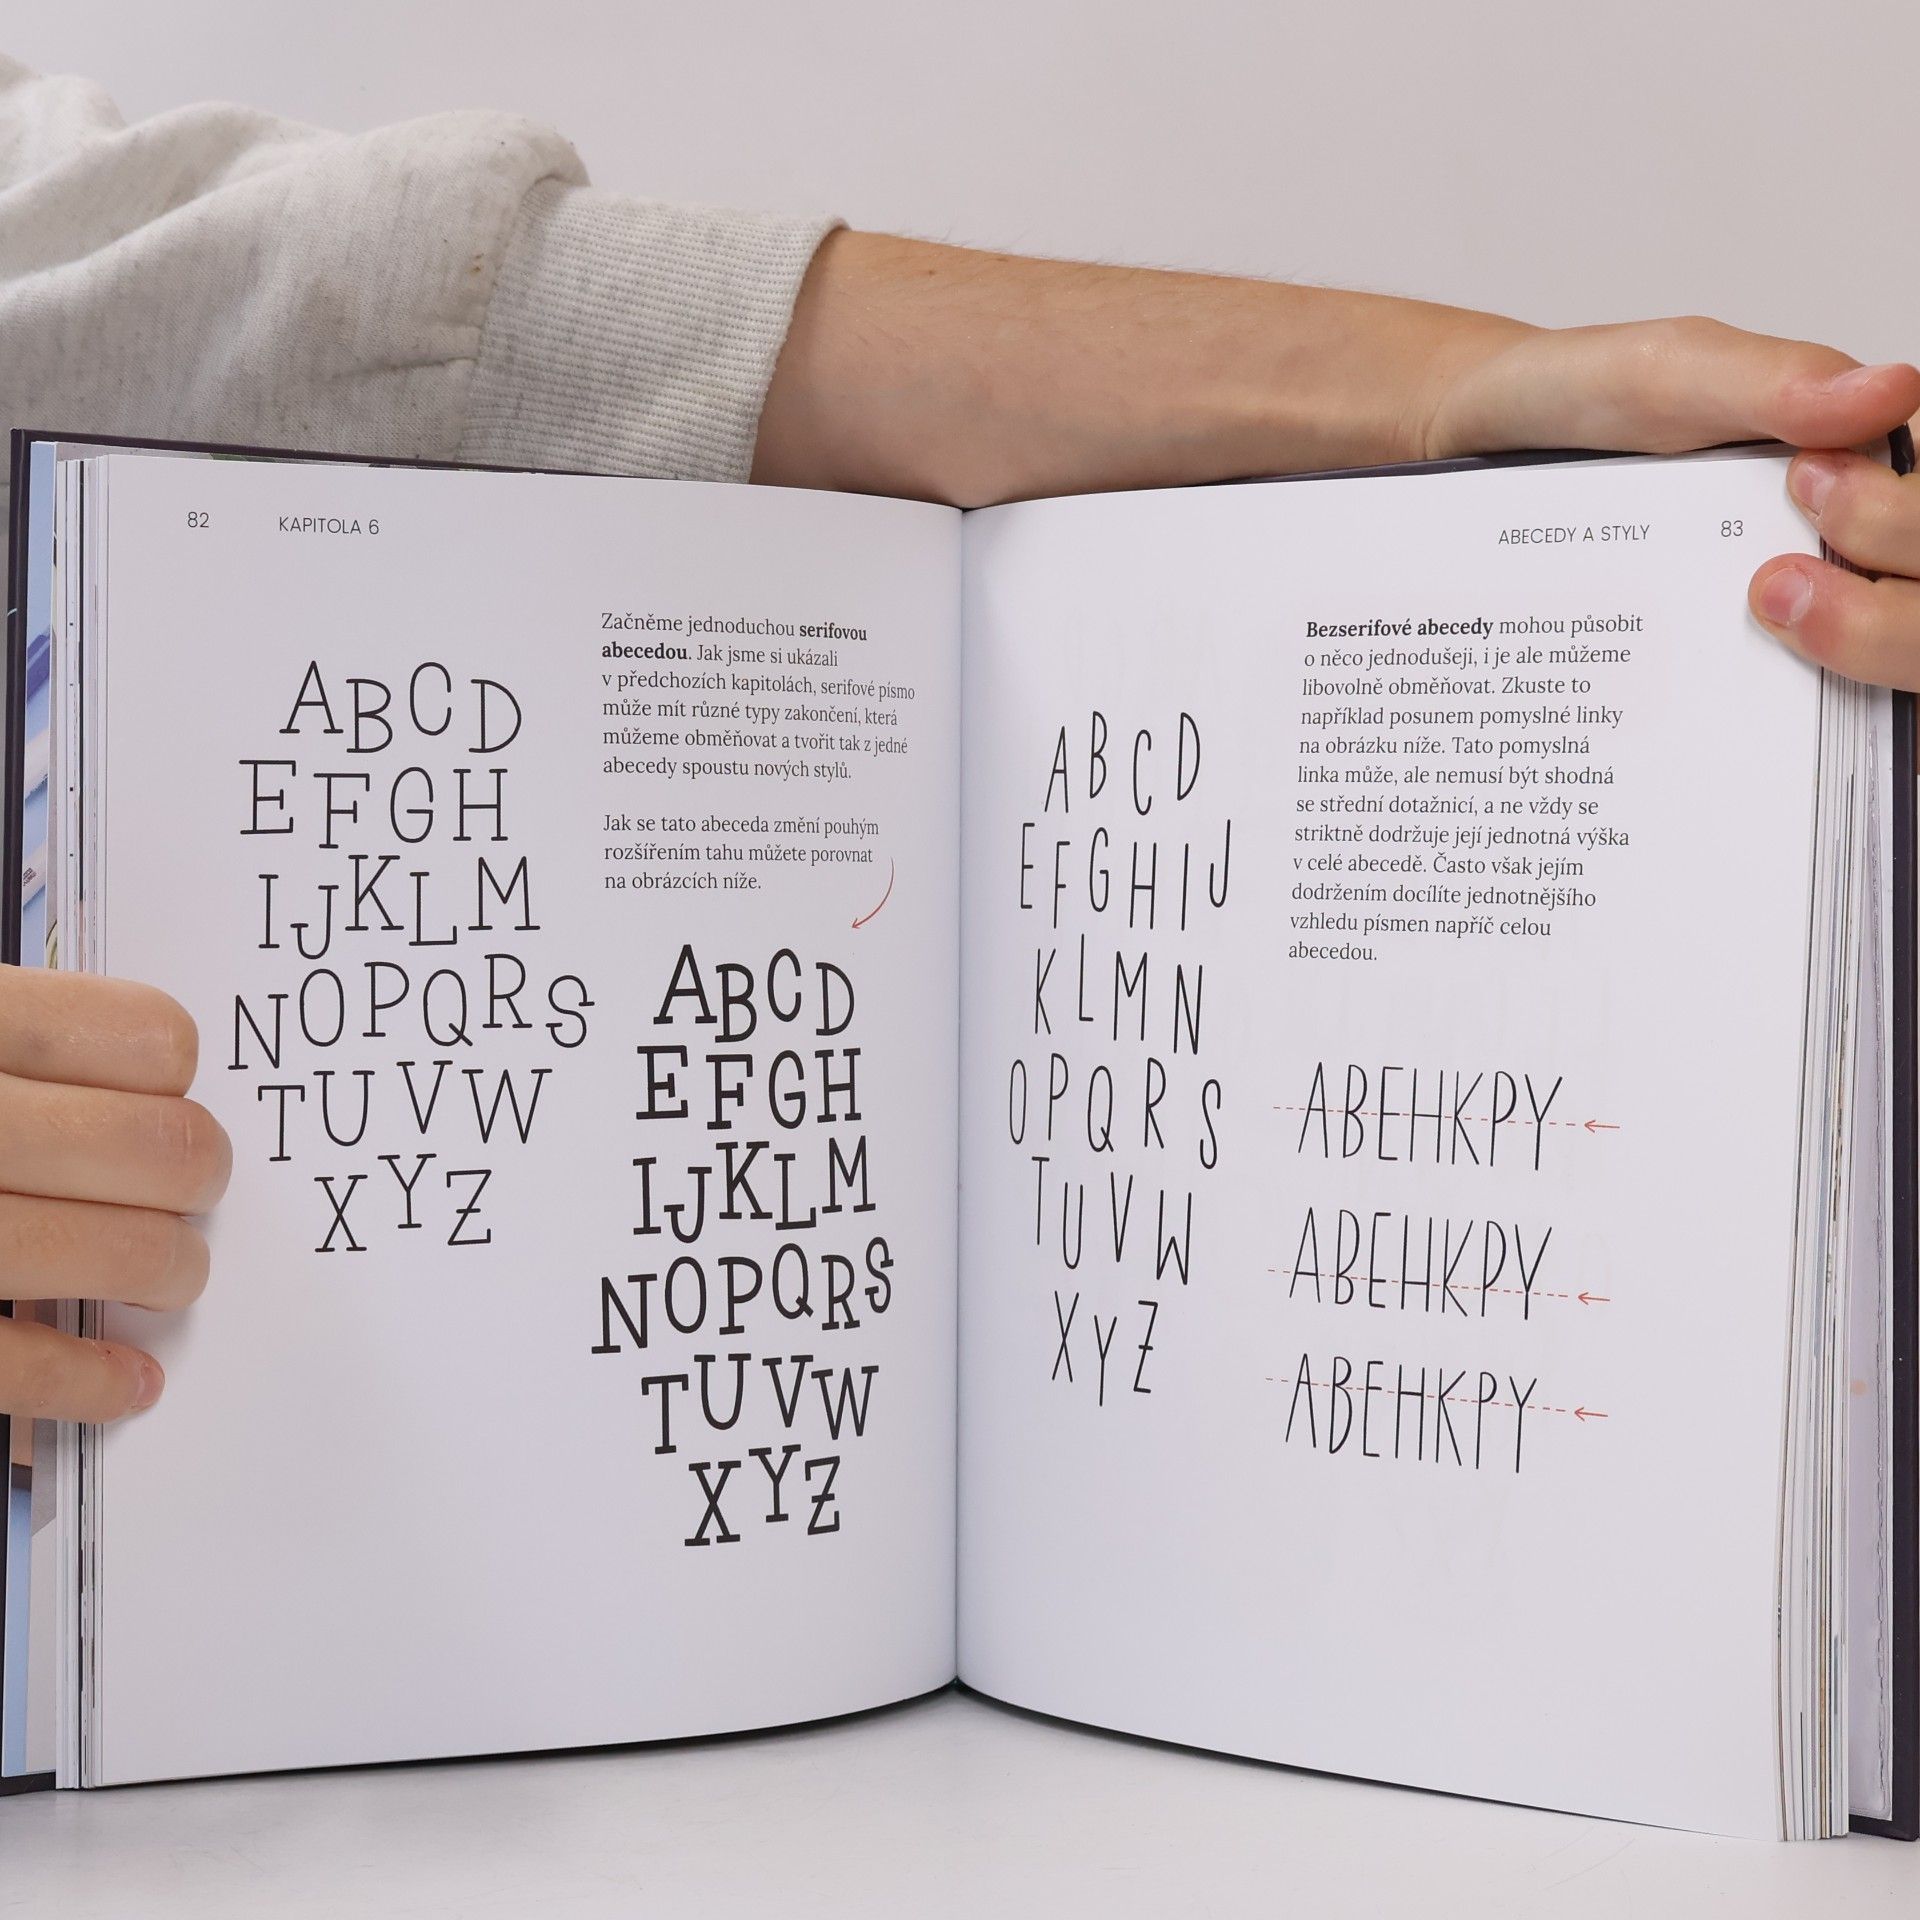 82 KAPITOLA 6
Začněme jednoduchou serifovou
abecedou. Jak jsme si ukázali
v předchozích kapitolách, serifové písmo
může mít různé typy zakončení, která
můžeme obměňovat a tvořit tak z jedné
abecedy spoustu nových stylů.
Jak se tato abeceda změní pouhým
rozšířením tahu můžete porovnat
na obrázcích níže.
ABCD
EFGH
IJKLM
NOPQRS
TUVW
XYZ
ABCD
EFGH
IJKLM
NOPQRS
TUVW
XYZ
ABECEDY A STYLY 83
Bezserifové abecedy mohou působit
o něco jednodušeji, i je ale můžeme
libovolně obměňovat. Zkuste to
například posunem pomyslné linky
na obrázku níže. Tato pomyslná
linka může, ale nemusí být shodná
se střední dotažnicí, a ne vždy se
striktně dodržuje její jednotná výška
v celé abecedě. Často však jejím
dodržením docílíte jednotnějšího
vzhledu písmen napříč celou
abecedou.
ABCD
EFGHIJ
KLMN
OPQRS
TUVW
XYZ
ABEHKPY
ABEHKPY
ABEHKPY